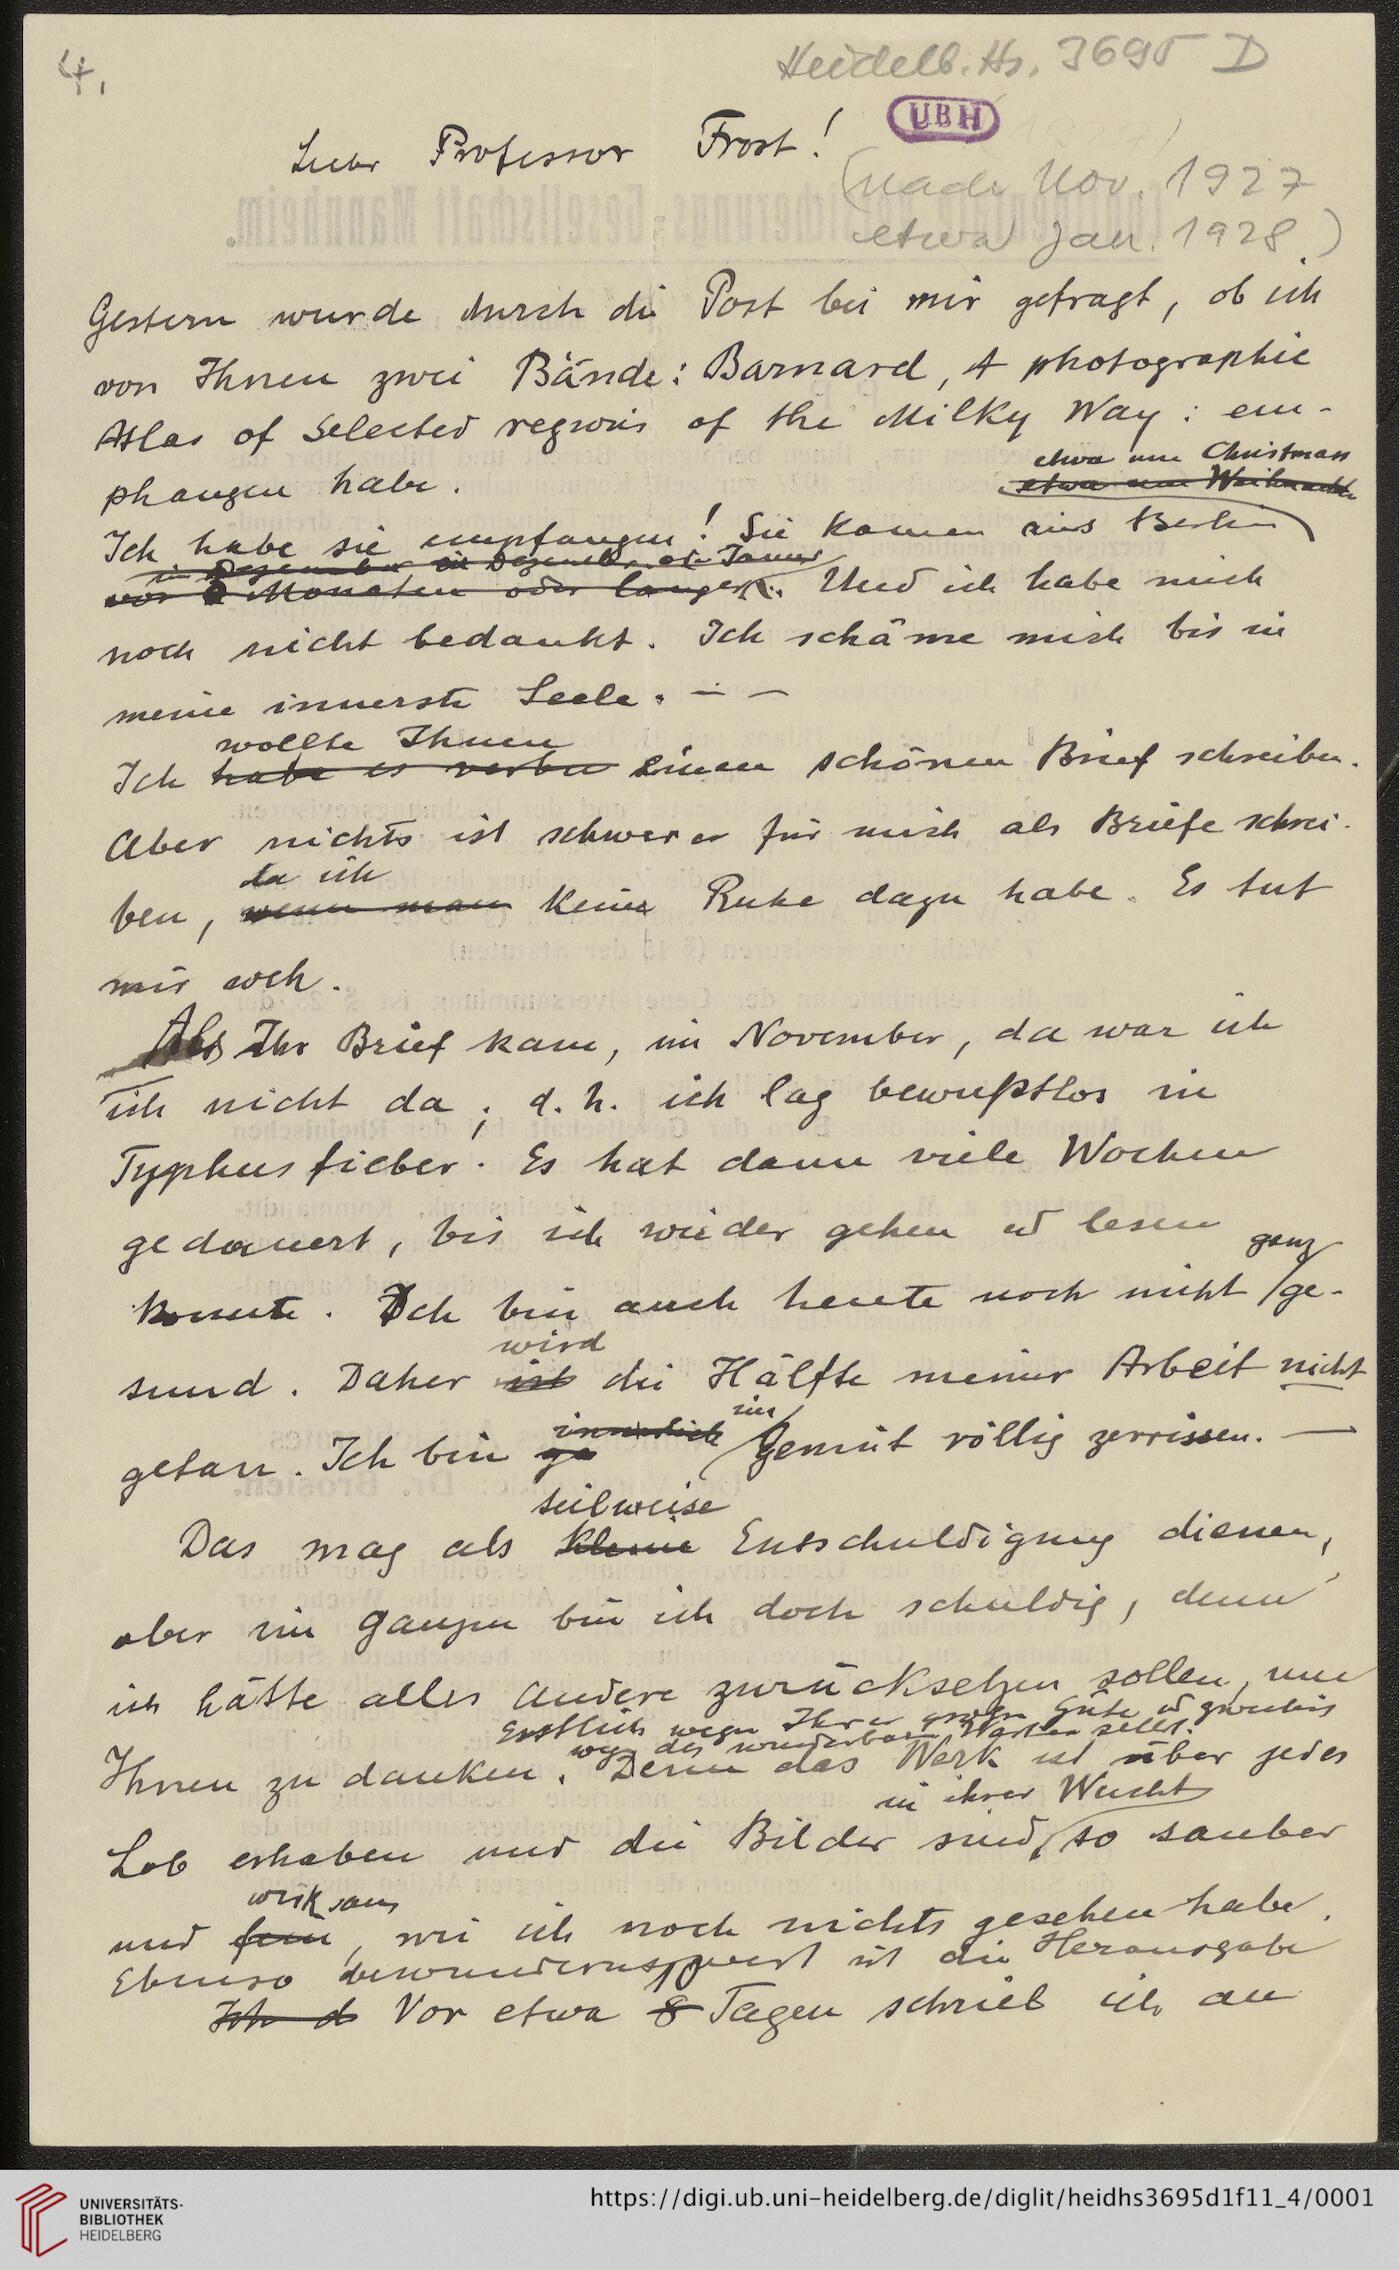 4.
Heidelb. Hs. 3695 D
UBH
Lieber Professor Frost!
(nach Nov. 1927
etwa Jan. 1928)
Gestern wurde durch die Post bei mir gefragt, ob ich
von Ihnen zwei Bände: Barnard, A photographic
Atlas of Selected regions of the Milky Way: em-
etwa um Christmass
etwa um Weihnachten
phangen habe.
Ich habe sie empfangen! Sie kamen aus Berlin
in Dezember in Dezember od. Januar
vor 2 Monaten oder länger. Und ich habe mich
noch nicht bedankt. Ich schäme mich bis in
meine innerste Seele. — —
wollte Ihnen
Ich habe es verbu einen schönen Brief schreiben.
Aber nichts ist schwerer für mich als Briefe schrei-
da ich
ben, wenn man keine Ruhe dazu habe. Es tut
mir weh.
Als Ihr Brief kam, im November, da war ich
ich nicht da; d. h. ich lag bewußtlos in
Typhusfieber. Es hat dann viele Wochen
gedauert, bis ich wieder gehen ud lesen
ganz
konnte. Ich bin auch heute noch nicht ge-
wird
sund. Daher ist die Hälfte meiner Arbeit nicht
innerlich im
getan. Ich bin ge Gemüt völlig zerrissen. —
teilweise
Das mag als kleine Entschuldigung dienen,
aber im ganzen bin ich doch schuldig, denn
ich hätte alles Andere zurücksetzen sollen, um
Erstlich wegen Ihrer großen Güte ud zweitens
weg. des wunderbaren Werkes selbst.
Ihnen zu danken. Denn das Werk ist über jedes
in ihrer Wucht
Lob erhaben und die Bilder sind so sauber
wirksam
und fein, wie ich noch nichts gesehen habe.
Ebenso bewundernswert ist die Herausgabe
Ich d Vor etwa 8 Tagen schrieb ich an
UNIVERSITÄTS-
BIBLIOTHEK
HEIDELBERG
https://digi.ub.uni-heidelberg.de/diglit/heidhs3695d1f11_4/0001